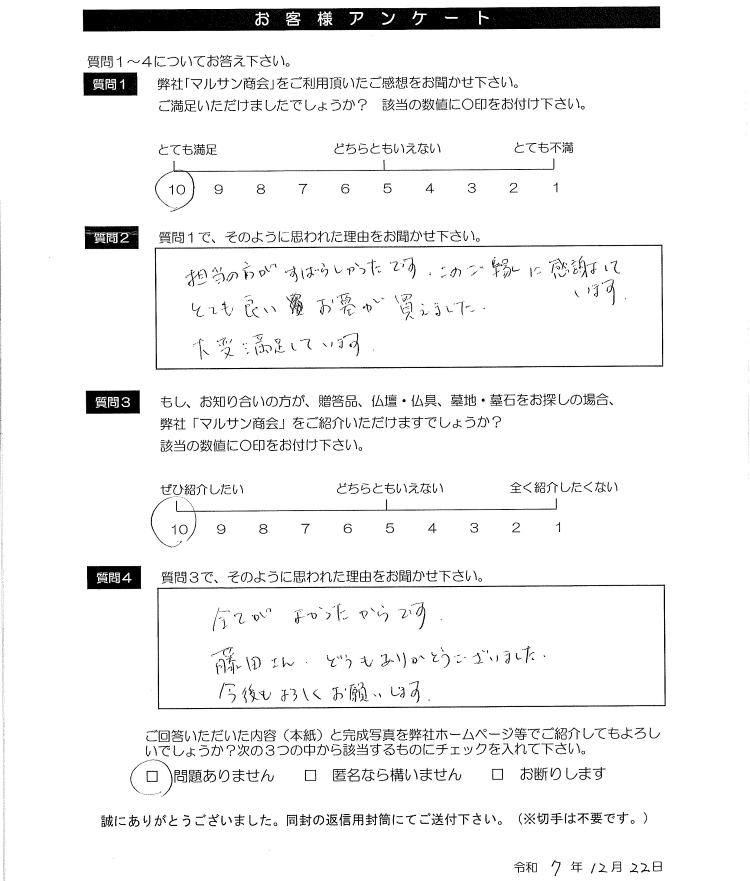 お客様アンケート
質問１～４についてお答え下さい。
質問１ 弊社「マルサン商会」をご利用頂いたご感想をお聞かせ下さい。
ご満足いただけましたでしょうか？ 該当の数値に〇印をお付け下さい。
とても満足 どちらともいえない とても不満
10 9 8 7 6 5 4 3 2 1
質問２ 質問１で、そのように思われた理由をお聞かせ下さい。
担当の方がすばらしかったです.このご縁に感謝して
います.
とても良いお墓が買えました.
大変満足しています.
質問３ もし、お知り合いの方が、贈答品、仏壇・仏具、墓地・墓石をお探しの場合、
弊社「マルサン商会」をご紹介いただけますでしょうか？
該当の数値に〇印をお付け下さい。
ぜひ紹介したい どちらともいえない 全く紹介したくない
10 9 8 7 6 5 4 3 2 1
質問４ 質問３で、そのように思われた理由をお聞かせ下さい。
全てがよかったからです.
藤田さん.どうもありがとうございました.
今後もよろしくお願いします.
ご回答いただいた内容（本紙）と完成写真を弊社ホームページ等でご紹介してもよろし
いでしょうか？次の３つの中から該当するものにチェックを入れて下さい。
□ 問題ありません □ 匿名なら構いません □ お断りします
誠にありがとうございました。同封の返信用封筒にてご送付下さい。（※切手は不要です。）
令和 7 年 12 月 22 日